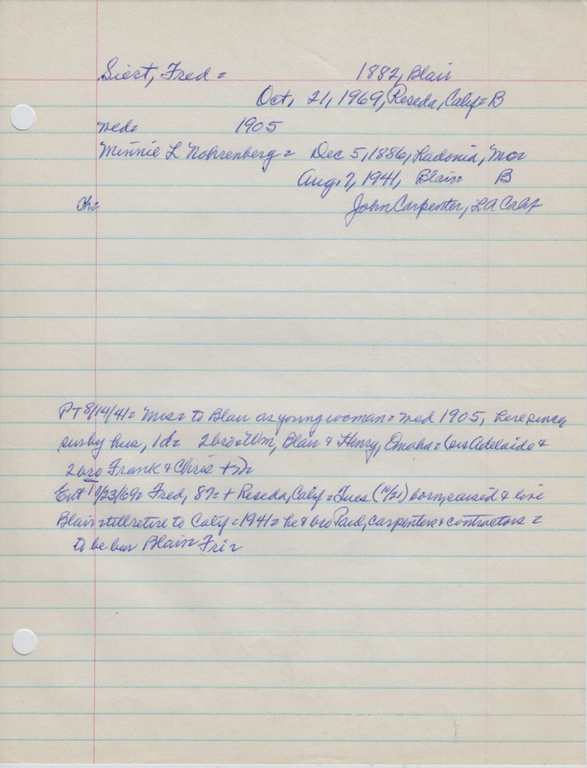 Siert, Fred = 1882, Blair
Oct, 21, 1969, Reseda, Calif = B
wed = 1905
Minnie L Nohrenberg = Dec 5, 1886, Ladonia, Mo =
Aug, 7, 1941, Blair B
Ch = John Carpenter, LA Calif
PT 8/14/41 = Mrs = to Blair as young woman = wed 1905, here since
surby hus, 1d = 2bro = Wm, Blair & Henry, Omaha = Adelaide &
2 bro Frank & Chris +
Ent 10/23/69 = Fred, 87 = + Reseda, Calif = Tues (10/21) born, raised & live
Blair till retire to Calif = 1941 = he & bro Paul, carpenters & contractors =
to be bur Blair Fri =